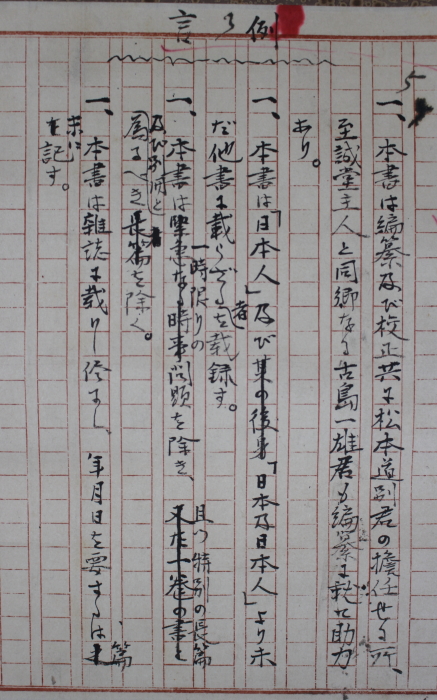 例言
一、本書は編纂及び校正共に松本道別君の擔任せる所、
至誠堂主人と同郷なる古島一雄君も編纂に就て助力
あり。
一、本書は「日本人」及び其の後身「日本及日本人」より未
だ他書に載らざる者を載録す。
一、本書は緊急なる一時限りの時事問題を除き、且つ特別の長篇
及び別冊と
為るべき長篇を除く。
一、本書は雑誌に載りし儘にし、年月日を要するは篇
末に記す。
5